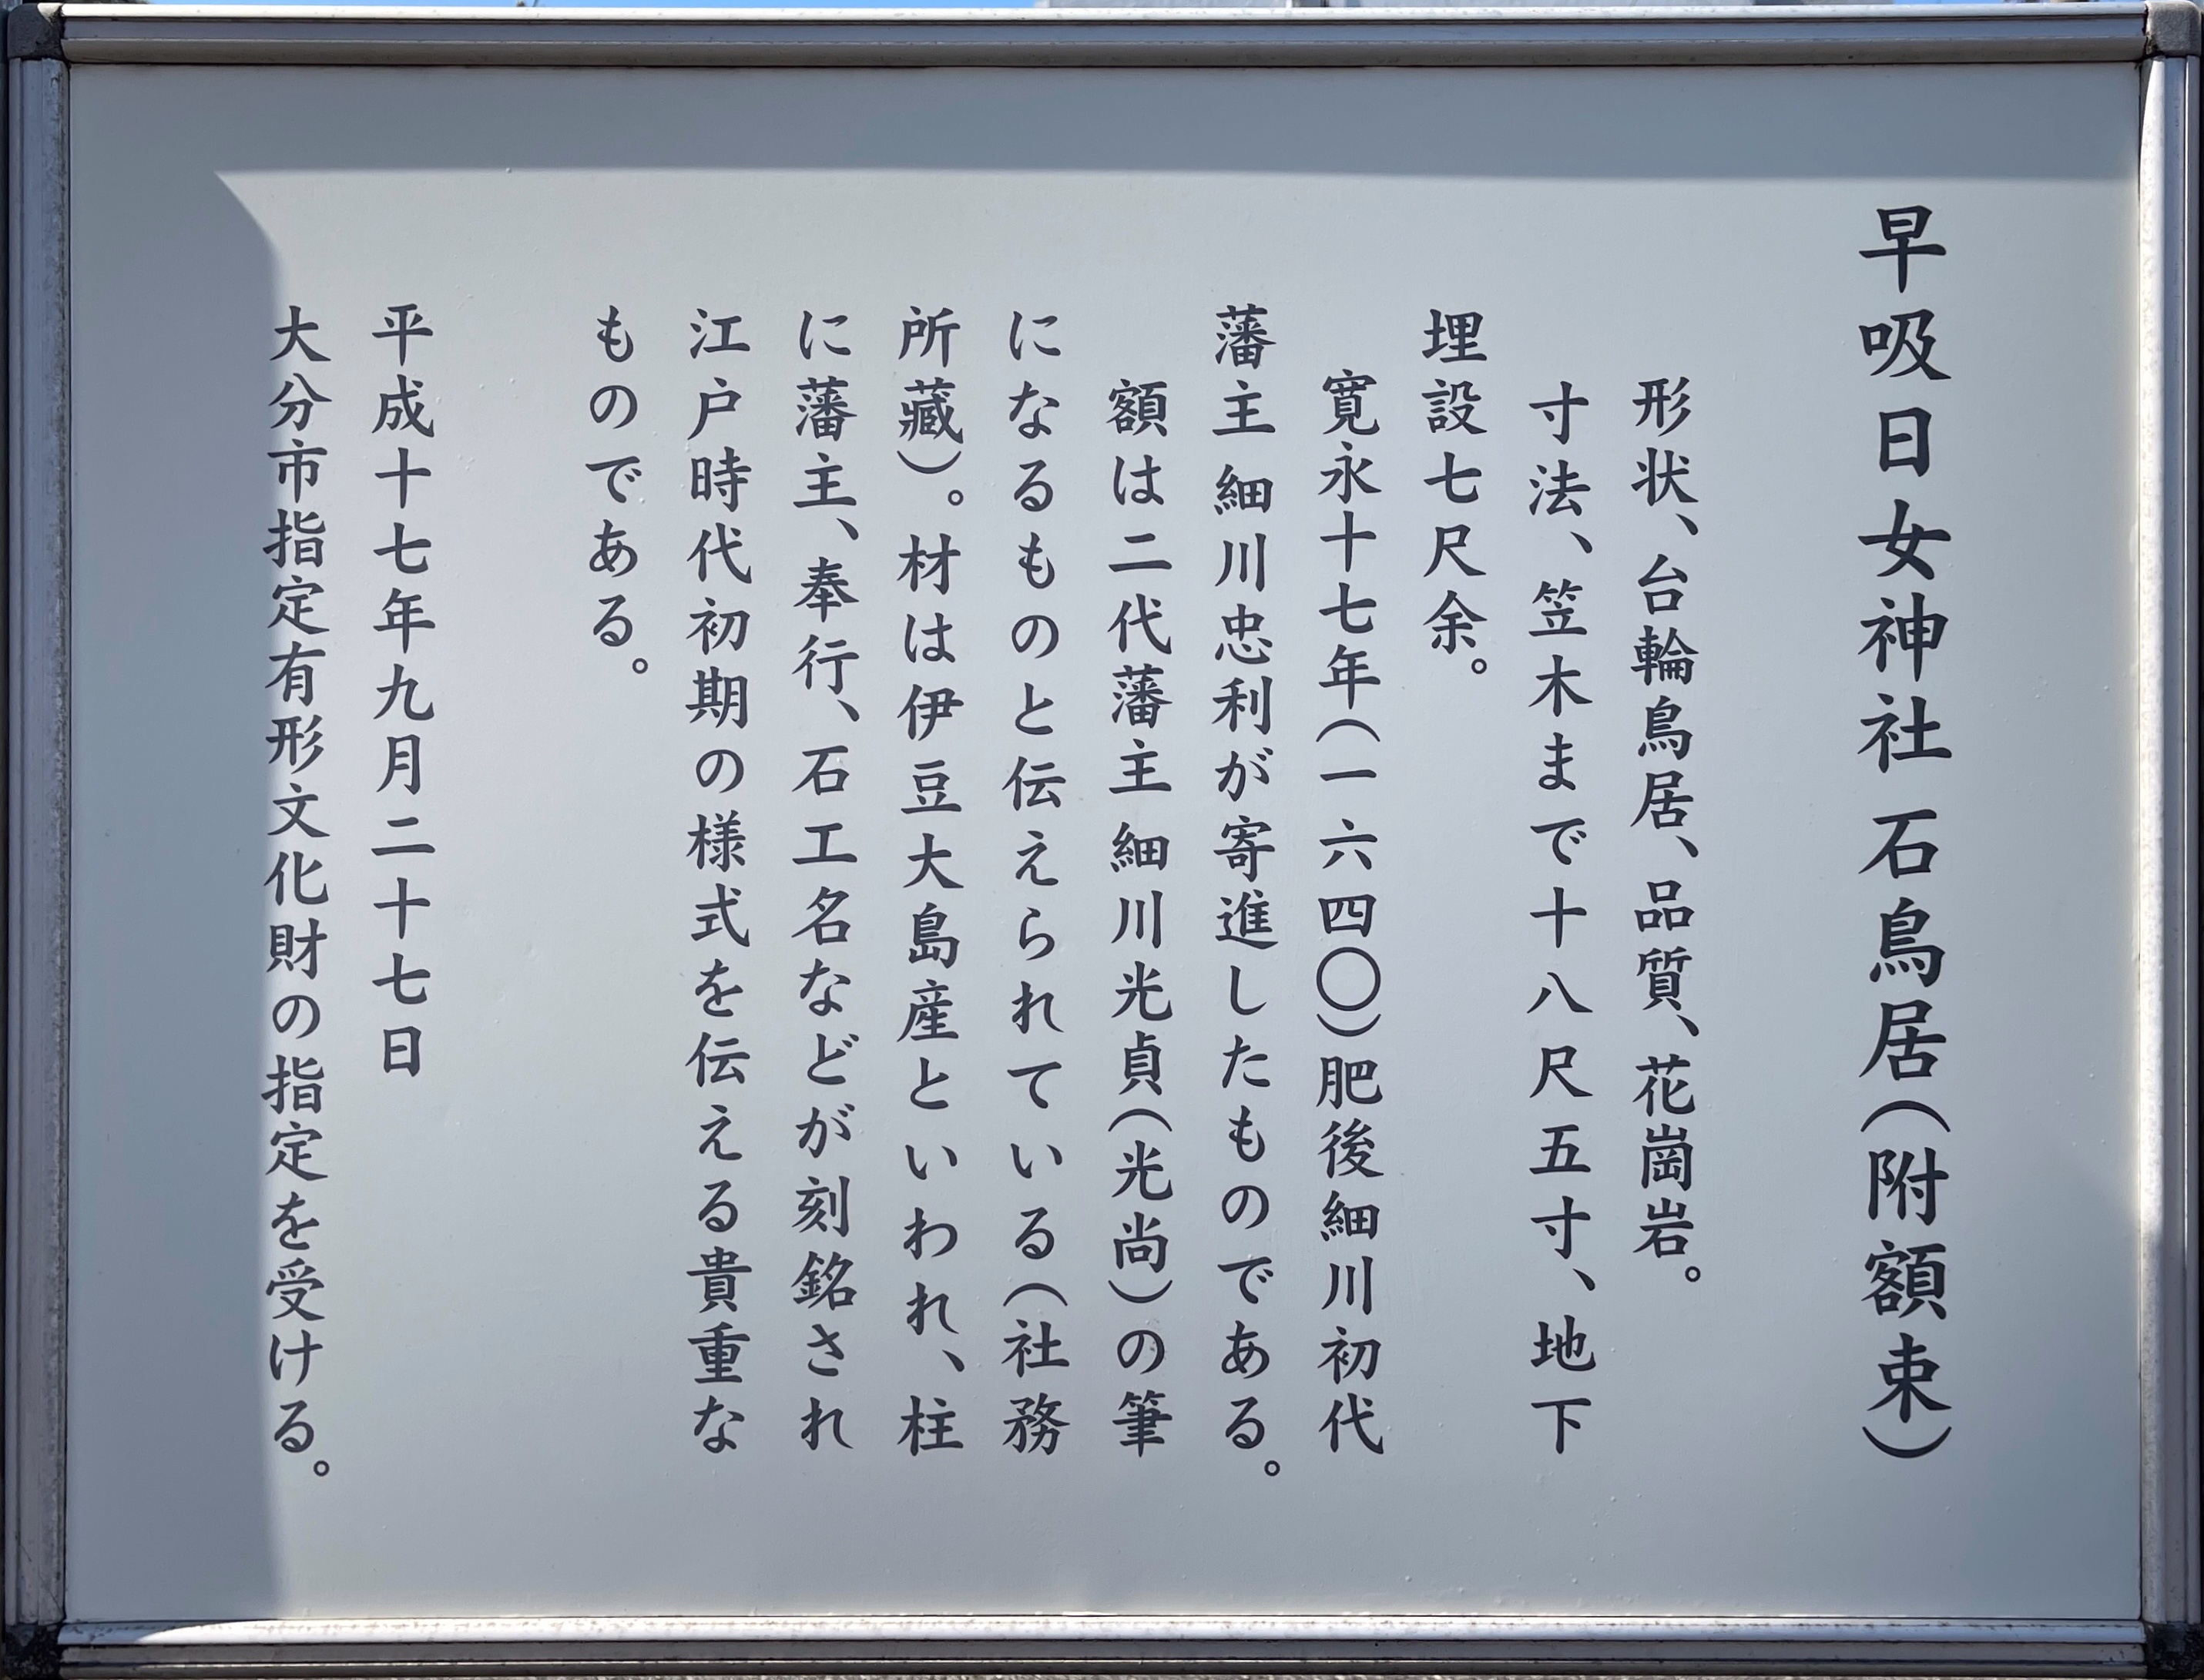 早吸日女神社 石鳥居(附額束)
形状、台輪鳥居、品質、花崗岩。
寸法、笠木まで十八尺五寸、地下
埋設七尺余。
寛永十七年(一六四〇)肥後細川初代
藩主 細川忠利が寄進したものである。
額は二代藩主 細川光貞(光尚)の筆
になるものと伝えられている(社務
所藏)。材は伊豆大島産といわれ、柱
に藩主、奉行、石工名などが刻銘され
江戸時代初期の様式を伝える貴重な
ものである。
平成十七年九月二十七日
大分市指定有形文化財の指定を受ける。